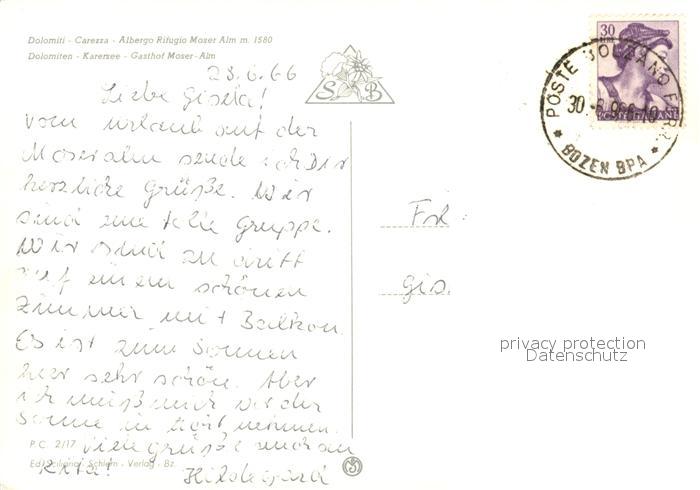 Dolomiti - Carezza - Albergo Rifugio Moser Alm m. 1580
Dolomiten - Karersee - Gasthof Moser-Alm
23.6.66
Liebe Gisela!
vom urlaub auf der
Moseralm sende ich Dir
herzliche Grüße. Wir
sind eine tolle Gruppe.
Wir sind zu dritt
auf einem schönen
Zimmer mit Balkon.
Es ist zum Sonnen
hier sehr schön. Aber
ich muß mich vor der
Sonne in acht nehmen.
viele grüße auch an
Rita! Hildegard
S B
P.C. 2/17
Ed. Sciliana - Schlern - Verlag - Bz.
30
POSTE ITALIANE
POSTE BOLZANO FERR.
30.-6.966-10
* BOZEN BPA *
Frl.
Gis.
privacy protection
Datenschutz